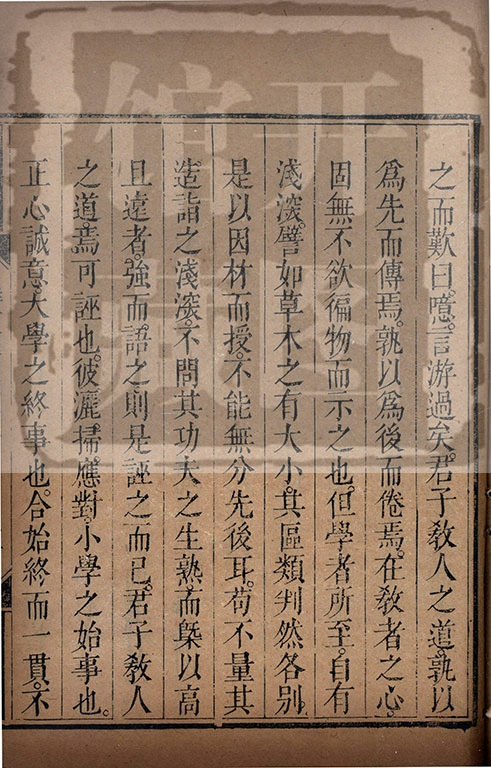 之而歎曰。噫。言游過矣。君子教人之道。孰以
爲先而傳焉。孰以爲後而倦焉。在教者之心。
固無不欲徧物而示之也。但學者所至。自有
淺深。譬如草木之有大小。其區類判然各別。
是以因材而授。不能無分先後耳。苟不量其
造詣之淺深。不問其功夫之生熟。而槩以高
且遠者。強而語之。則是誣之而已。君子教人
之道。焉可誣也。彼灑掃。應對。小學之始事也。
正心誠意。大學之終事也。合始終而一貫。不